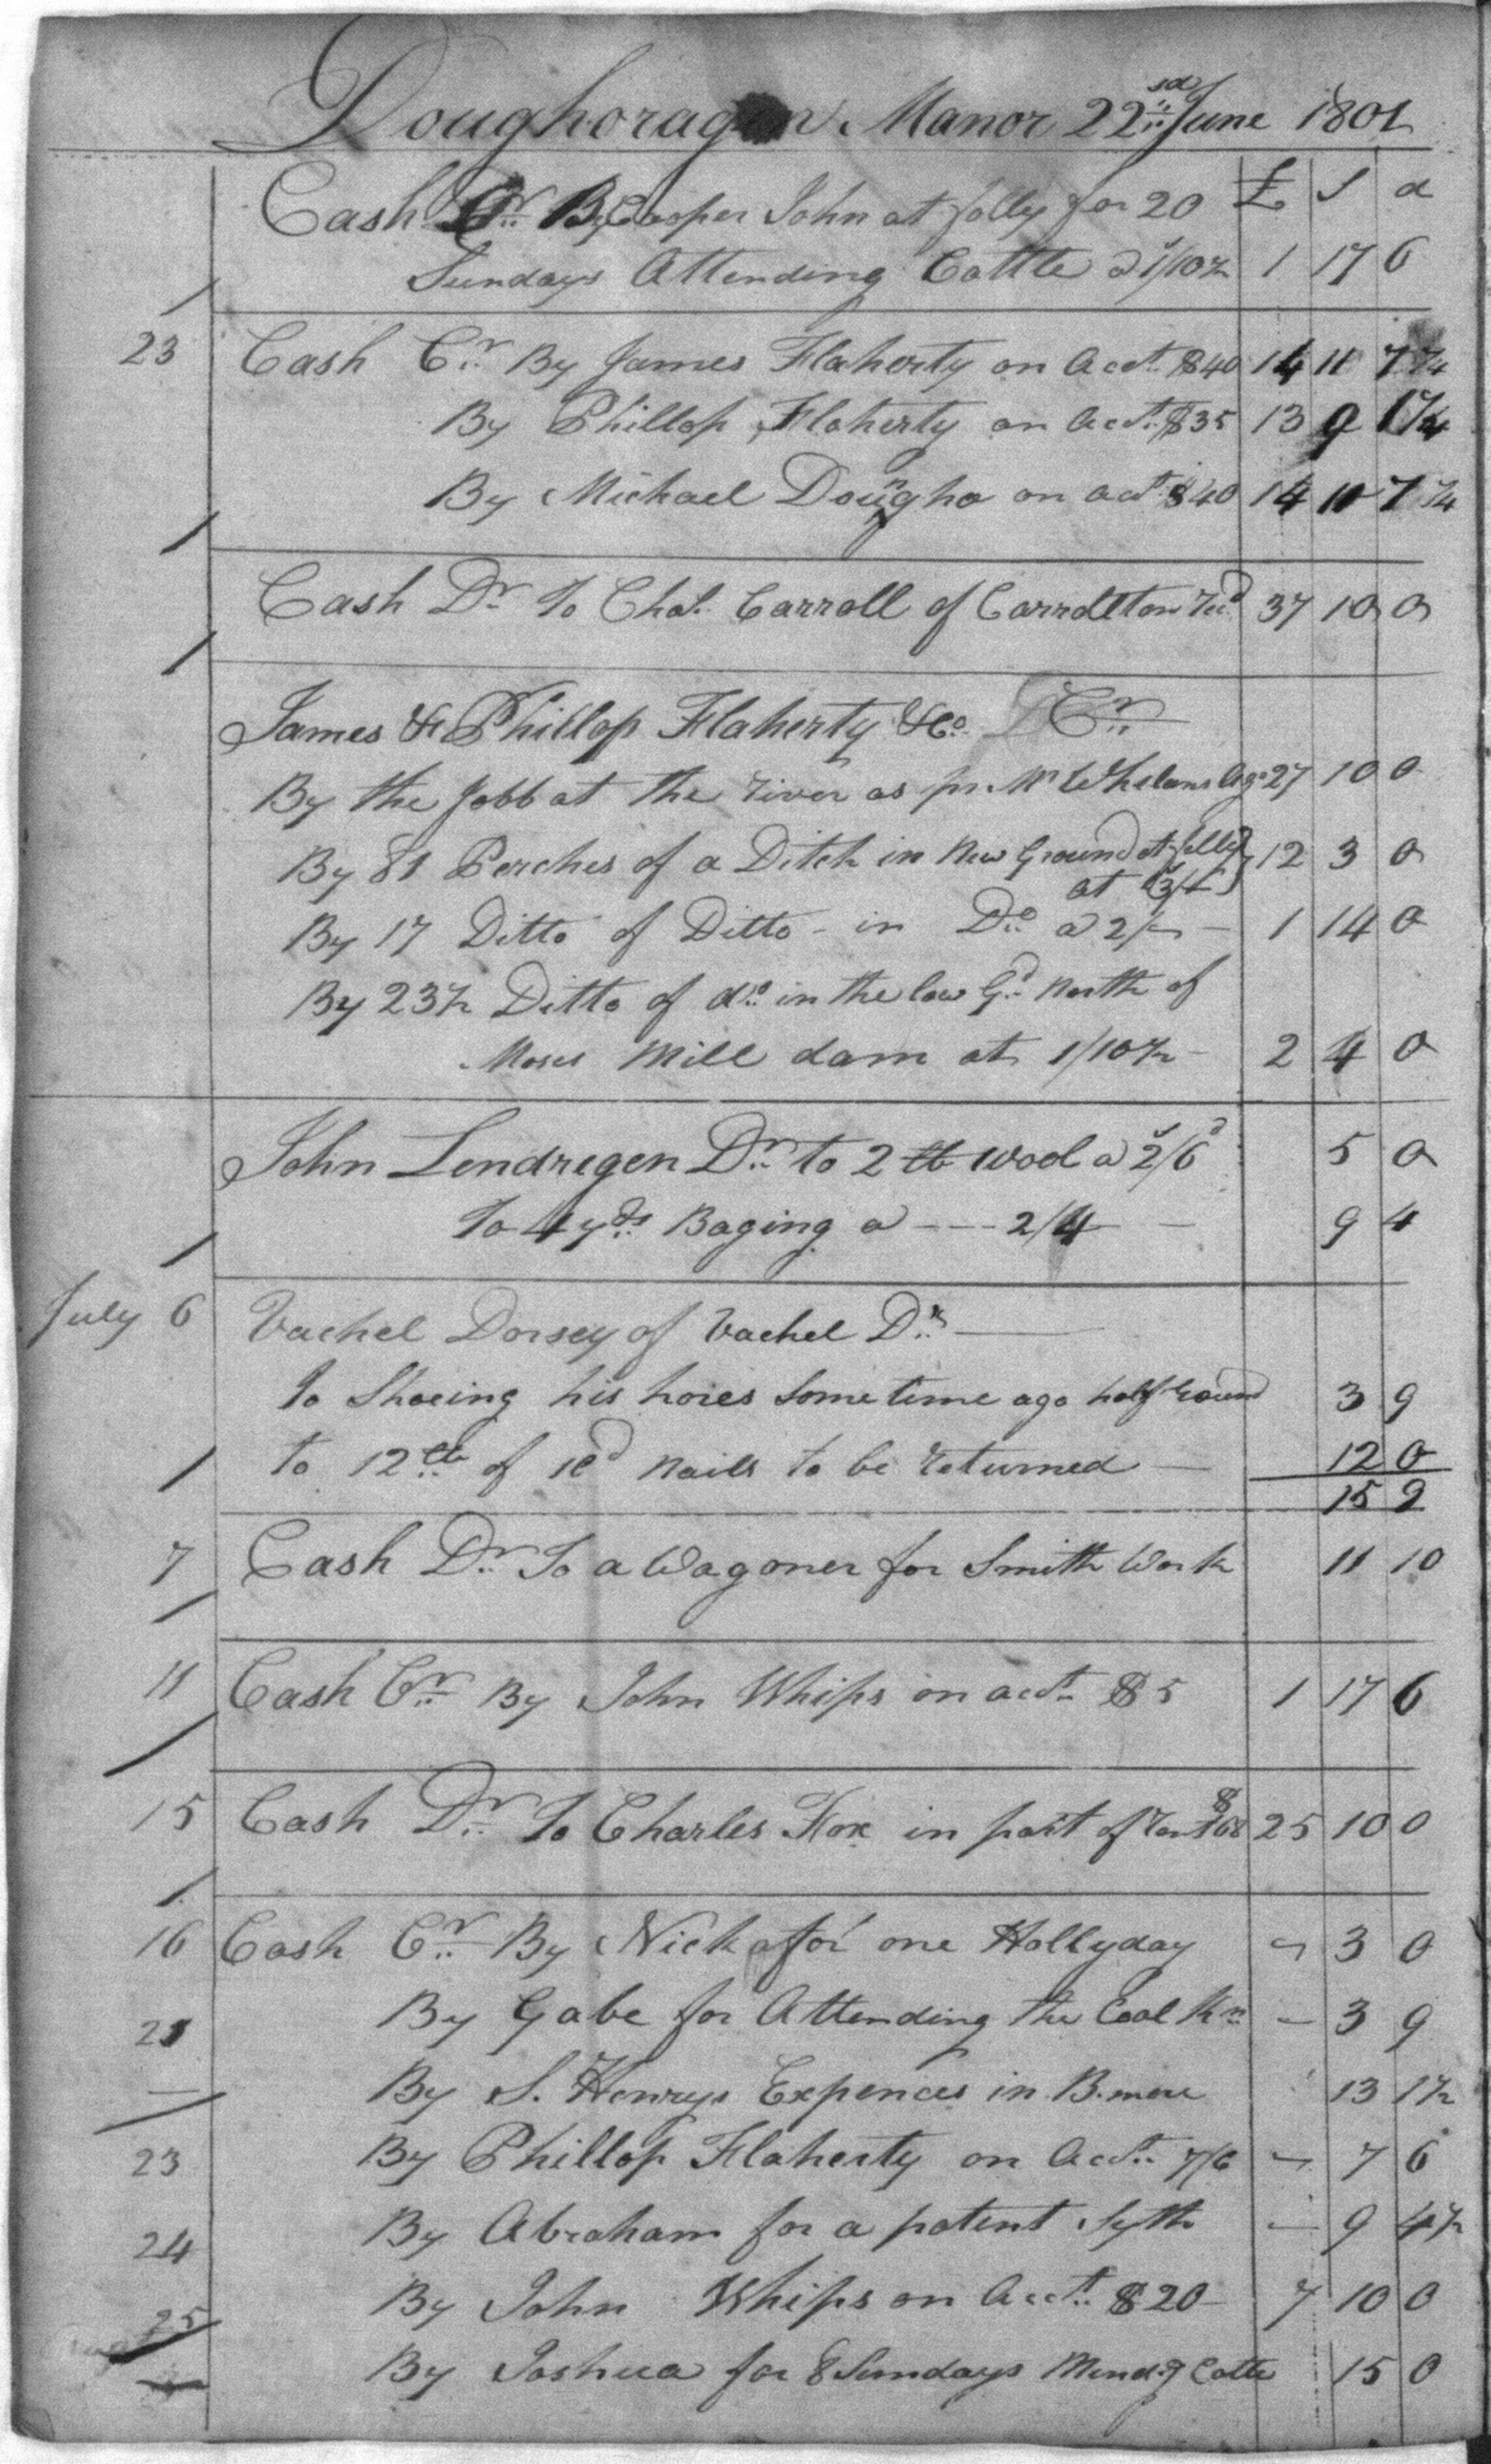 Doughoragen Manor 22nd June 1801
£ S d
Cash Cr By Cooper John at folly for 20
Sundays Attending Cattle a 1/10½ 1 17 6
23 Cash Cr By James Flaherty on Acct $40 14 11 7¼
By Phillop Flaherty on Acct $35 13 9 1¾
By Michael Dougha on act $40 14 10 7¼
Cash Dr To Chas. Carroll of Carrollton recd 37 10 0
James & Phillop Flaherty & Co. Cr
By the Jobb at the river as pr. Mr Whelans Agt 27 10 0
By 81 Perches of a Ditch in New Ground at folly
at 3/- 12 3 0
By 17 Ditto of Ditto - in Do a 2/- - 1 14 0
By 23½ Ditto of do in the low Gd North of
Moses Mill dam at 1/10½ - 2 4 0
John Lendregen Dr to 2 lb wool a 2/6 5 0
To 4 yds Baging a --- 2/4 - 9 4
July 6 Vachel Dorsey of Vachel Dr
To Shoeing his hoies Some time ago half round 3 9
to 12 lb of 10d Nails to be returned 12 0
15 9
7 Cash Dr To a Wagoner for Smith Work 11 10
11 Cash Cr By John Whips on act $5 1 17 6
15 Cash Dr To Charles Fox in part of rent $68 25 10 0
16 Cash Cr By Nick for one Hollyday - 3 0
21 By Gabe for Attending the Coal Kn - 3 9
By S. Henrys Expences in B.more 13 1½
23 By Phillop Flaherty on Acct. 7/6 - 7 6
24 By Abraham for a patent Syth - 9 4½
25 By John Whips on Acct. $20 - 7 10 0
By Joshua for 8 Sundays Mindg Cattle 15 0